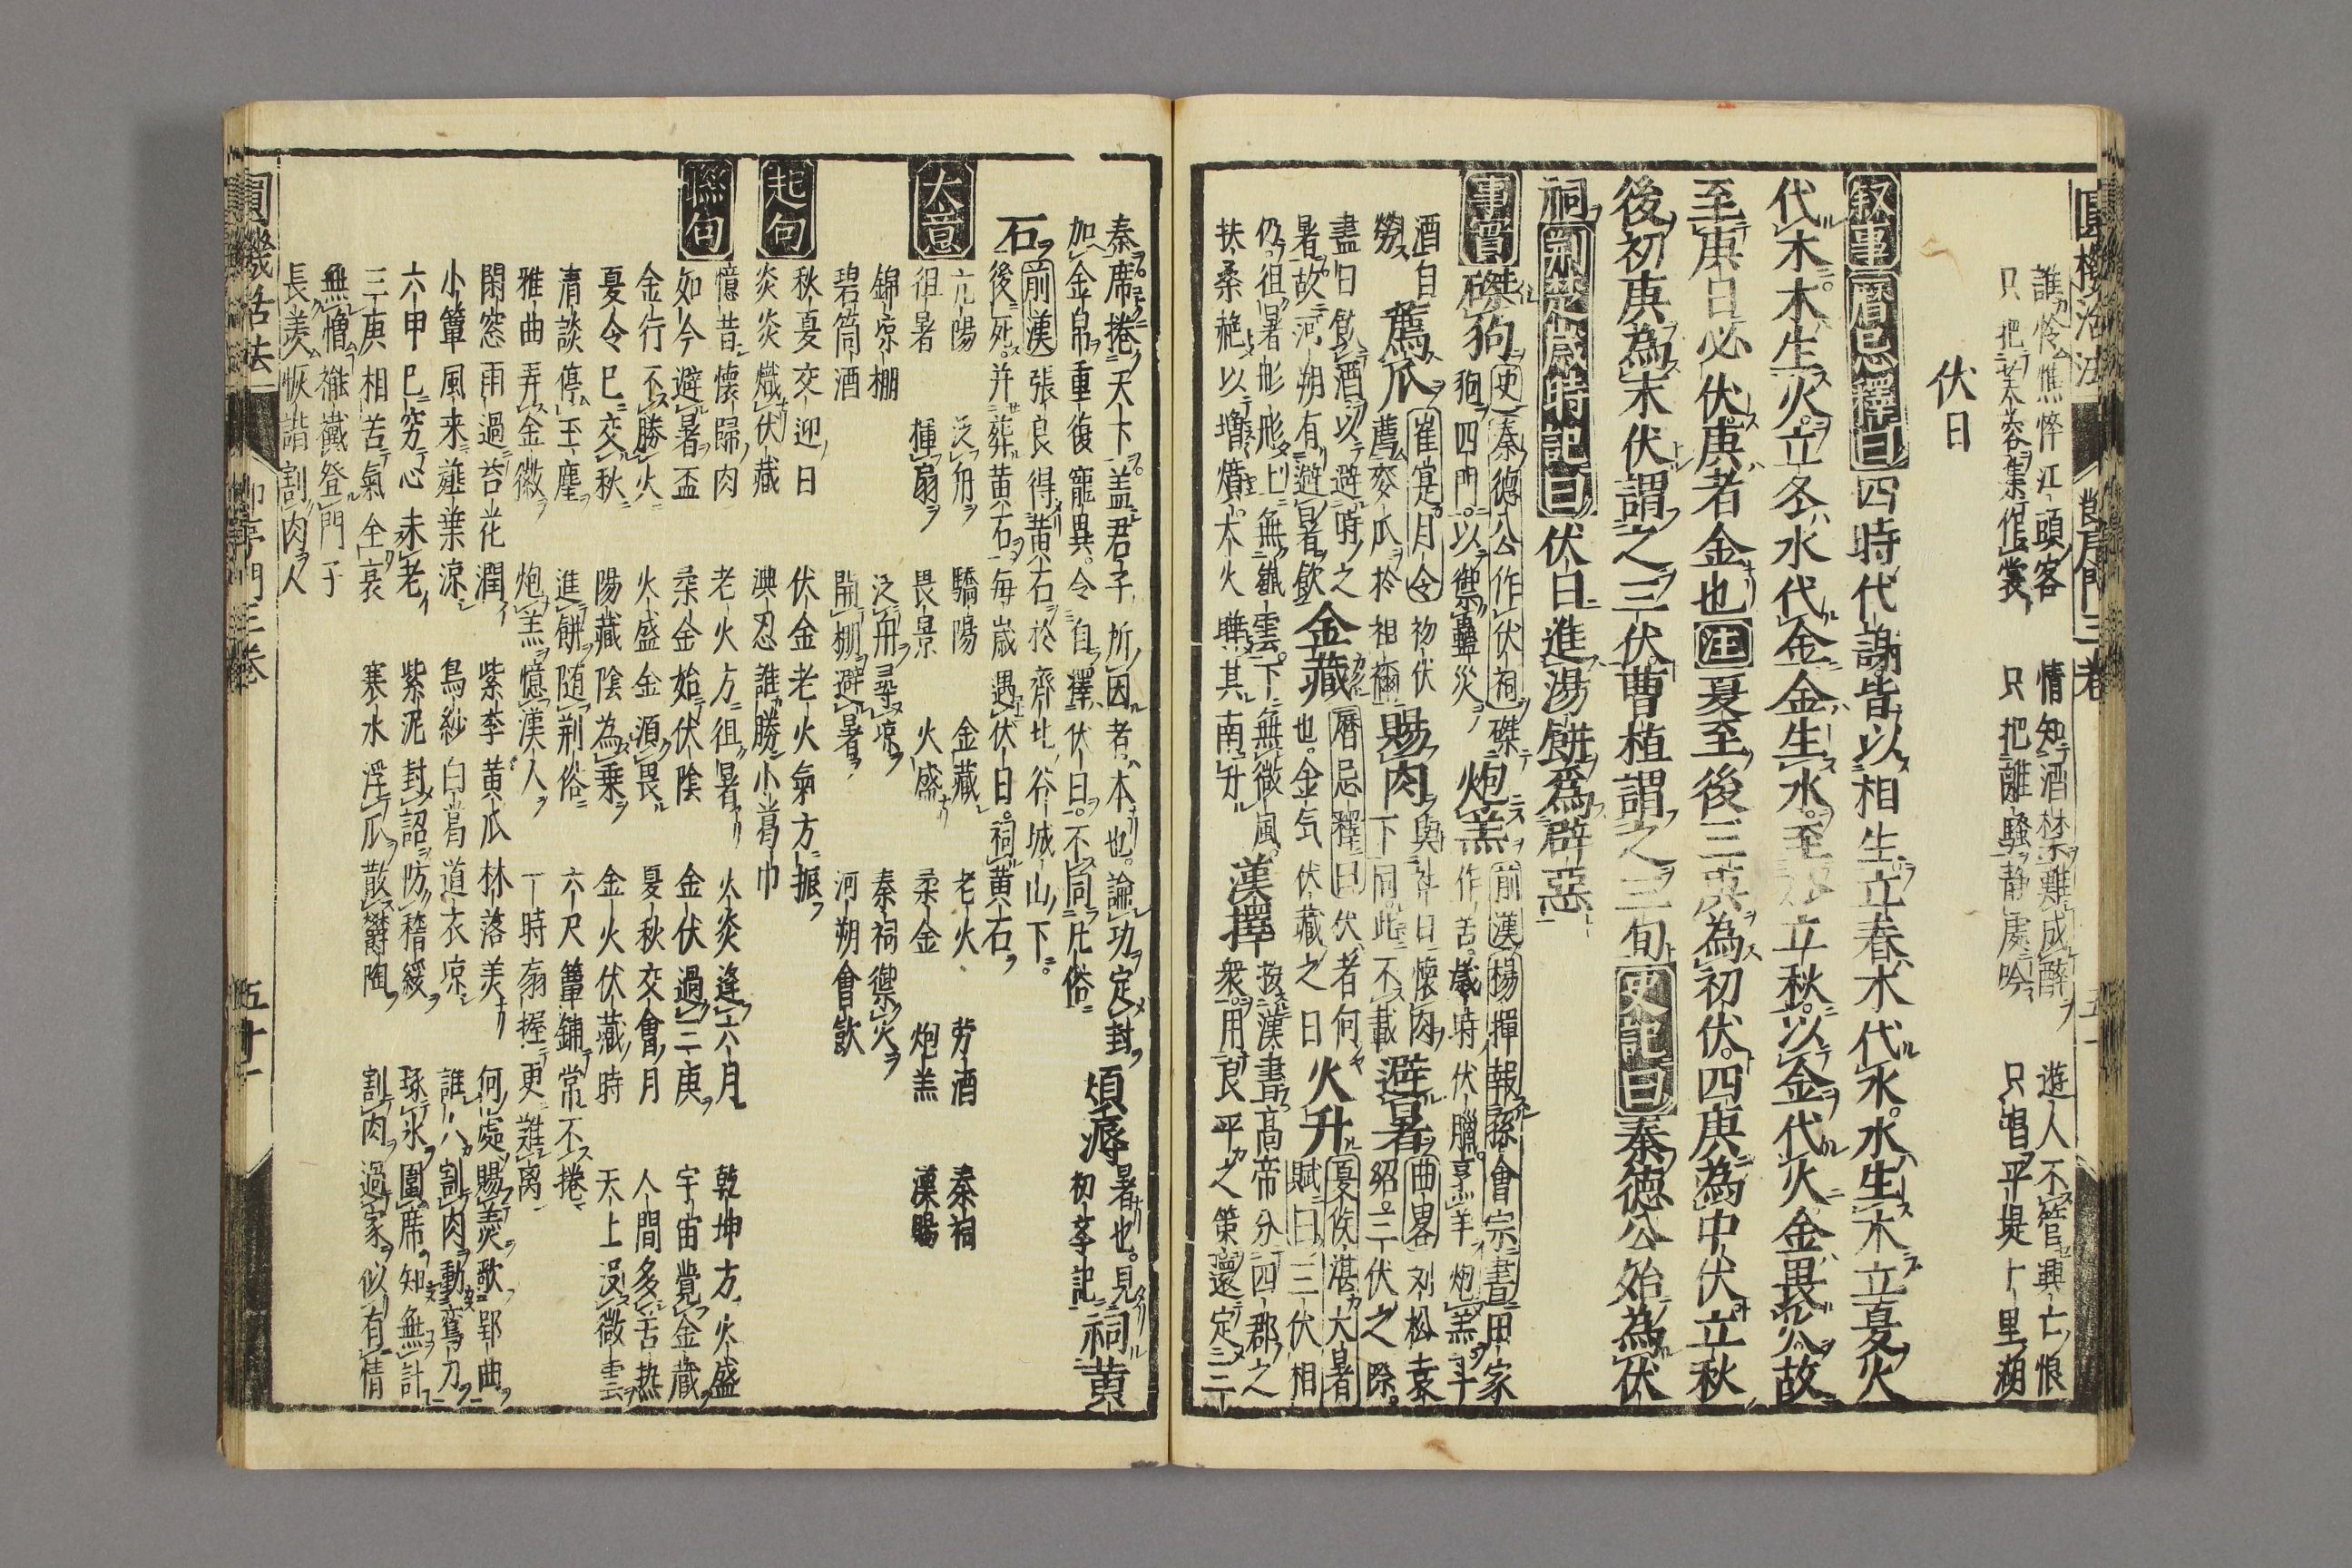 誰怜憔悴江頭客　情知酒禁難成醉　遊人不管興亡恨
只把芙蓉集作裳　只把離騷静處吟　只唱平堤上里湖
伏日
叙事 曆忌釋曰 四時代謝皆以相生立春木代水水生木立夏火
代木木生火立冬水代金金生水至 立秋以金代火金畏火故
至庚日必伏庚者金也 注 夏至後三庚為初伏四庚為中伏立秋
後初庚為末伏謂之三伏曹植謂之三旬 史記曰 秦徳公始為伏
祠 荆楚歳時記曰 伏日進湯餅為辟惡
事實 磔狗 史秦德公作伏祠磔
狗四門以禦蠱災 炮羔 前漢楊惲報孫會宗書田家
作苦歲時伏臘烹羊炮羔斗
酒自
勞 薦瓜 崔寔月令初伏
薦麥瓜於祖禰 賜肉 與社日懷肉
下同此不載 避暑 曲畧刘松袁
紹三伏之際
盡日飲酒以避時之
暑故河朔有避暑飲 金藏 曆忌釋曰伏者何
也金気伏藏之日 火升 夏侯湛大暑
賦曰三伏相
仍徂暑彤彤上無纖雲下無微風
扶桑赩以增燌大火曄其南升 漢擇 按漢書高帝分四郡之
衆用良平之策還定三
秦席捲天下盖君子所因者本也論功定封
加金帛重復寵異令自擇伏日不同凡俗 煩溽 暑也見
初學記 祠黄
石 前漢 張良得黄石於齊北谷城山下
後死并葬黄石每歳遇伏日祠黄石
大意 亢陽　泛舟　驕陽　金藏　老火　勞酒　秦祠
徂暑　揮扇　畏景　火盛　柔金　炮羔　漢賜
錦凉棚　泛舟尋凉　秦祠禦火
碧筒酒　開棚避暑　河朔會飲
起句 秋夏交迎日　伏金老火氣方振
炎炎熾伏藏　淟忍誰勝小葛巾
聯句 憶昔懐歸肉　老火方徂暑　火炎逢六月　乾坤方火盛
如今避暑盃　柔金始伏陰　金伏過三庚　宇宙覺金藏
金行不勝火　火盛金源畏　夏秋交會月　人間多苦熱
夏令已交秋　陽藏陰為乗　金火伏藏時　天上没微雲
清談停玉麈　進餅随荆俗　六尺簟鋪常不捲
雅曲弄金徽　炮羔憶漢人　一時扇握更難离
閑窓雨過苔花潤　紫李黄瓜林落美　何處賜羹歌郢曲
小簟風来薤葉涼　烏紗白葛道衣凉　誰八割肉動鸞刀
六甲已窮心未老　紫泥封詔防稽緩　琢氷圍席知無計
三庚相苦氣全衰　寒水浮瓜散欝陶　割肉過家似有情
無憎襶襶登門子
長羡恢諧割肉人
圓機活法　節序門三卷　五十一